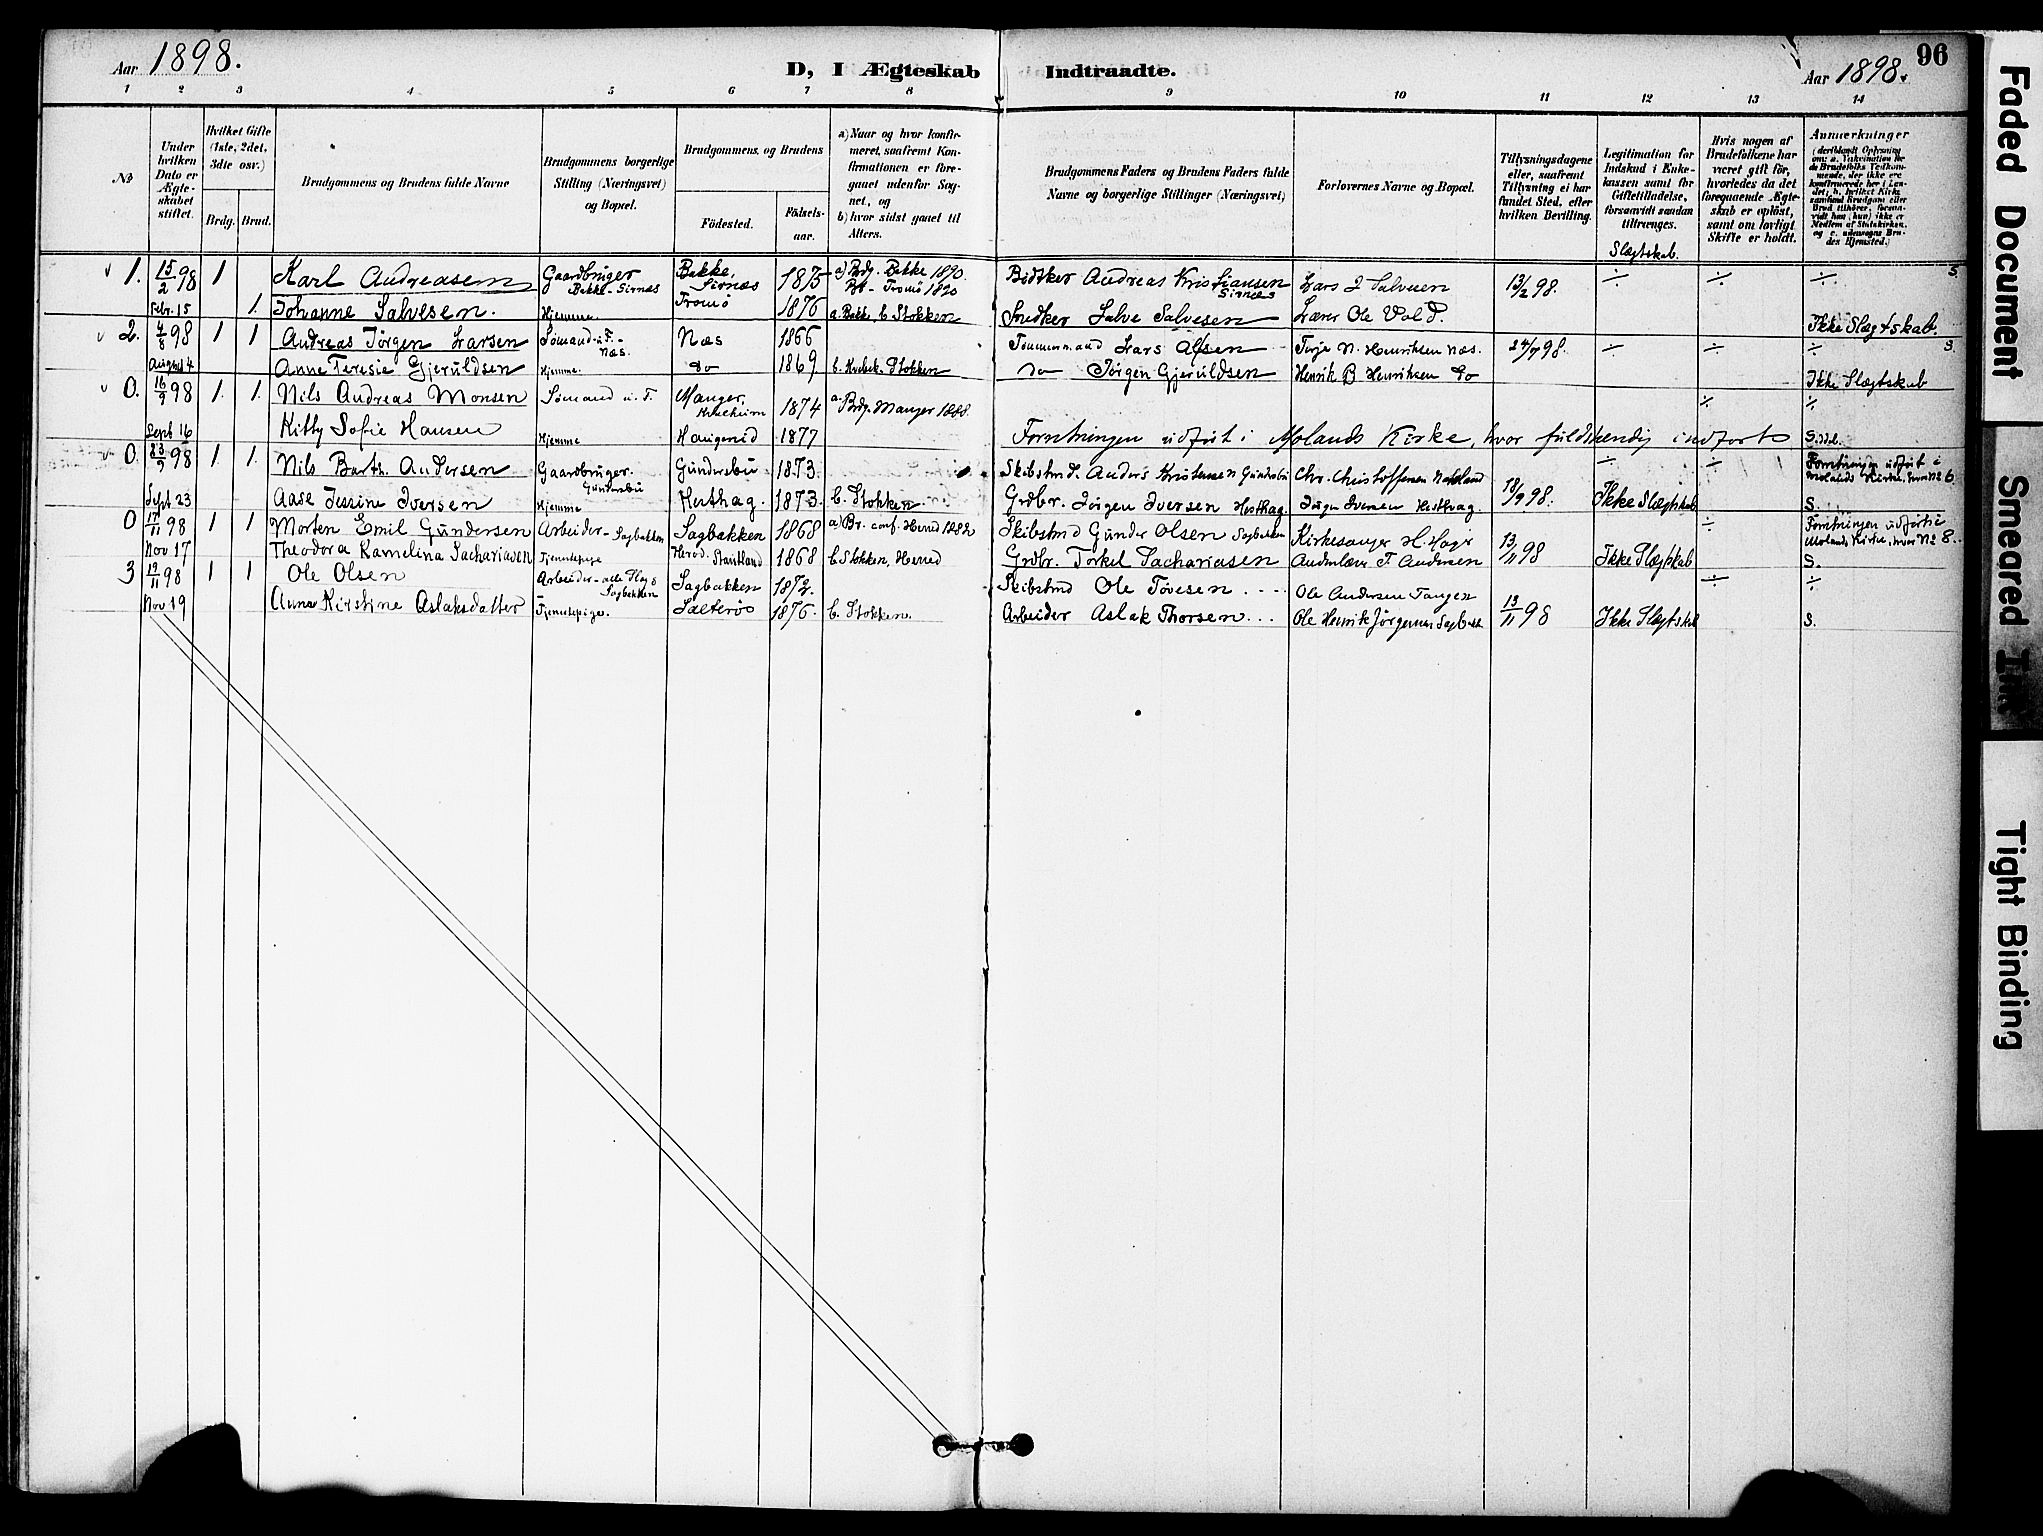 96
Aar 1898.
D, I Ægteskab Indtraadte.
Aar 1898.
1 2 3 4 5 6 7 8 9 10 11 12 13 14
№
Under hvilken Dato er Ægteskabet stiftet.
Hvilket Gifte (1ste, 2det, 3die osv.)
Brdg. Brud.
Brudgommens og Brudens fulde Navne
Brudgommens borgerlige Stilling (Næringsvei) og Bopæl.
Brudgommens og Brudens
Födested.
Födsels-aar.
a) Naar og hvor konfirmeret, saafremt Konfirmationen er foregaaet udenfor Sognet, og
b) hvor sidst gaaet til Alters.
Brudgommens Faders og Brudens Faders fulde Navne og borgerlige Stillinger (Næringsvei)
Forlovernes Navne og Bopæl.
Tillysningsdagene eller, saafremt Tillysning ei har fundet Sted, efter hvilken Bevilling.
Legitimation for Indskud i Enkekassen samt for Giftetilladelse, forsaavidt saadan tiltrænges.
Slægtskab.
Hvis nogen af Brudefolkene har været gift för, hvorledes da det foregaaende Ægteskab er oplöst, samt om lovligt Skifte er holdt.
Anmærkninger
1. 15/2 98 1 Karl Andreasen Gaardbruger Bakke-Sirnæs Bakke, Sirnæs 1875 a) Brdg. Bakke 1890 Brt - Tromö 1890 Bödker Andreas Kristiansen Sirnæs Lars J Salvesen 13/2 98. ÷ ÷ ÷ S.
Febr. 15 1. Johanne Salvesen. Hjemme Tromö 1876 a. Bakke, b. Stokken Snedker Salve Salvesen Lærer Ole Vold. Ikke Slægtskab.
2. 4/8 98 1 1 Andreas Jörgen Larsen Sömand-u.F.- Næs. Næs 1866 Tömmermand Lars Olsen Terje N. Henriksen Næs. 24/7 98. ÷ ÷ ÷ S.
August 4 Anne Teresie Gjeruldsen Hjemme. do 1869 b. Stokken do Jörgen Gjeruldsen Henrik B Henriksen do Ikke Slægtskab
0. 16/9 98 1. 1. Nils Andreas Monsen Sömand u. F. Manger, 1874 a. Brdg. Manger 1888. ÷ ÷
Sept 16 Kitty Sofie Hansen Hjemme 1877 Forretningen udfört i Molands Kirke, hvor fuldstændig indfört S.
0. 23/9 98 1 1. Nils Barth. Andersen Gaardbruger. Gundersbu Gundersbu 1873. Skibstmd. Anders Kristensen Gundersbu Chr. Christoffersen ÷ ÷ Forretningen udfört i Molands Kirke, hvor № 6
Sept 23 Aase Jessine Iversen Hjemme Hesthag. 1873. b. Stokken Grdbr. Jörgen Iversen Hesthag. Jörgen Iversen Hesthag. 18/9 98. Ikke Slægtskab S.
0 17/11 98 1 1 Morten Emil Gundersen Arbeider - Sagbakken Sagbakken 1868 a) Br. conf. Herred 1882 Skibstmd Gunder Olsen Sagbakken Kirkesanger ÷ Forretningen udfört i Molands Kirke, hvor № 8.
Nov 17 Theodora Kamelina Sachariasen Tjenestepige 1868 b. Stokken, Herred Grdbr. Torkel Sachariasen F. Andersen 13/11 98 Ikke Slægtskab S.
3 19/11 98 1 1 Ole Olsen Arbeider - Sagbakken Sagbakken 1872. Skibstmd Ole Tövesen Ole Andersen Tangen ÷ ÷
Nov 19 Anna Kirstine Aslaksdatter Tjenestepige. Salterös 1876. b. Stokken. Arbeider Aslak Thorsen Ole Henrik Jörgensen Sagbakk 13/11 98 Ikke Slægtskab S.
Faded Document
Smeared Ink
Tight Binding